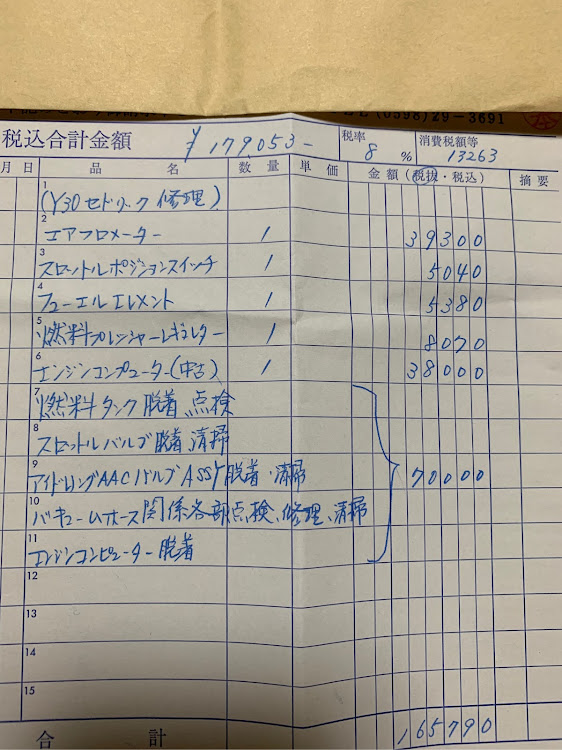 (0598)29-3691
税込合計金額 ¥179,053- 税率 8 % 消費税額等 13263
月 日 品 名 数 量 単 価 金額(税抜・税込) 摘 要
1 (Y30セドリック 修理)
2 エアフロメーター 1 39300
3 スロットルポジションスイッチ 1 5040
4 フューエルエレメント 1 5380
5 燃料プレッシャーレギュレター 1 8070
6 エンジンコンピューター(中古) 1 38000
7 燃料タンク脱着、点検
8 スロットルバルブ脱着 清掃
9 アイドリングAACバルブASSY脱着・清掃 70000
10 バキュームホース関係各部点検、修理、清掃
11 エンジンコンピューター脱着
12
13
14
15
合 計 165790